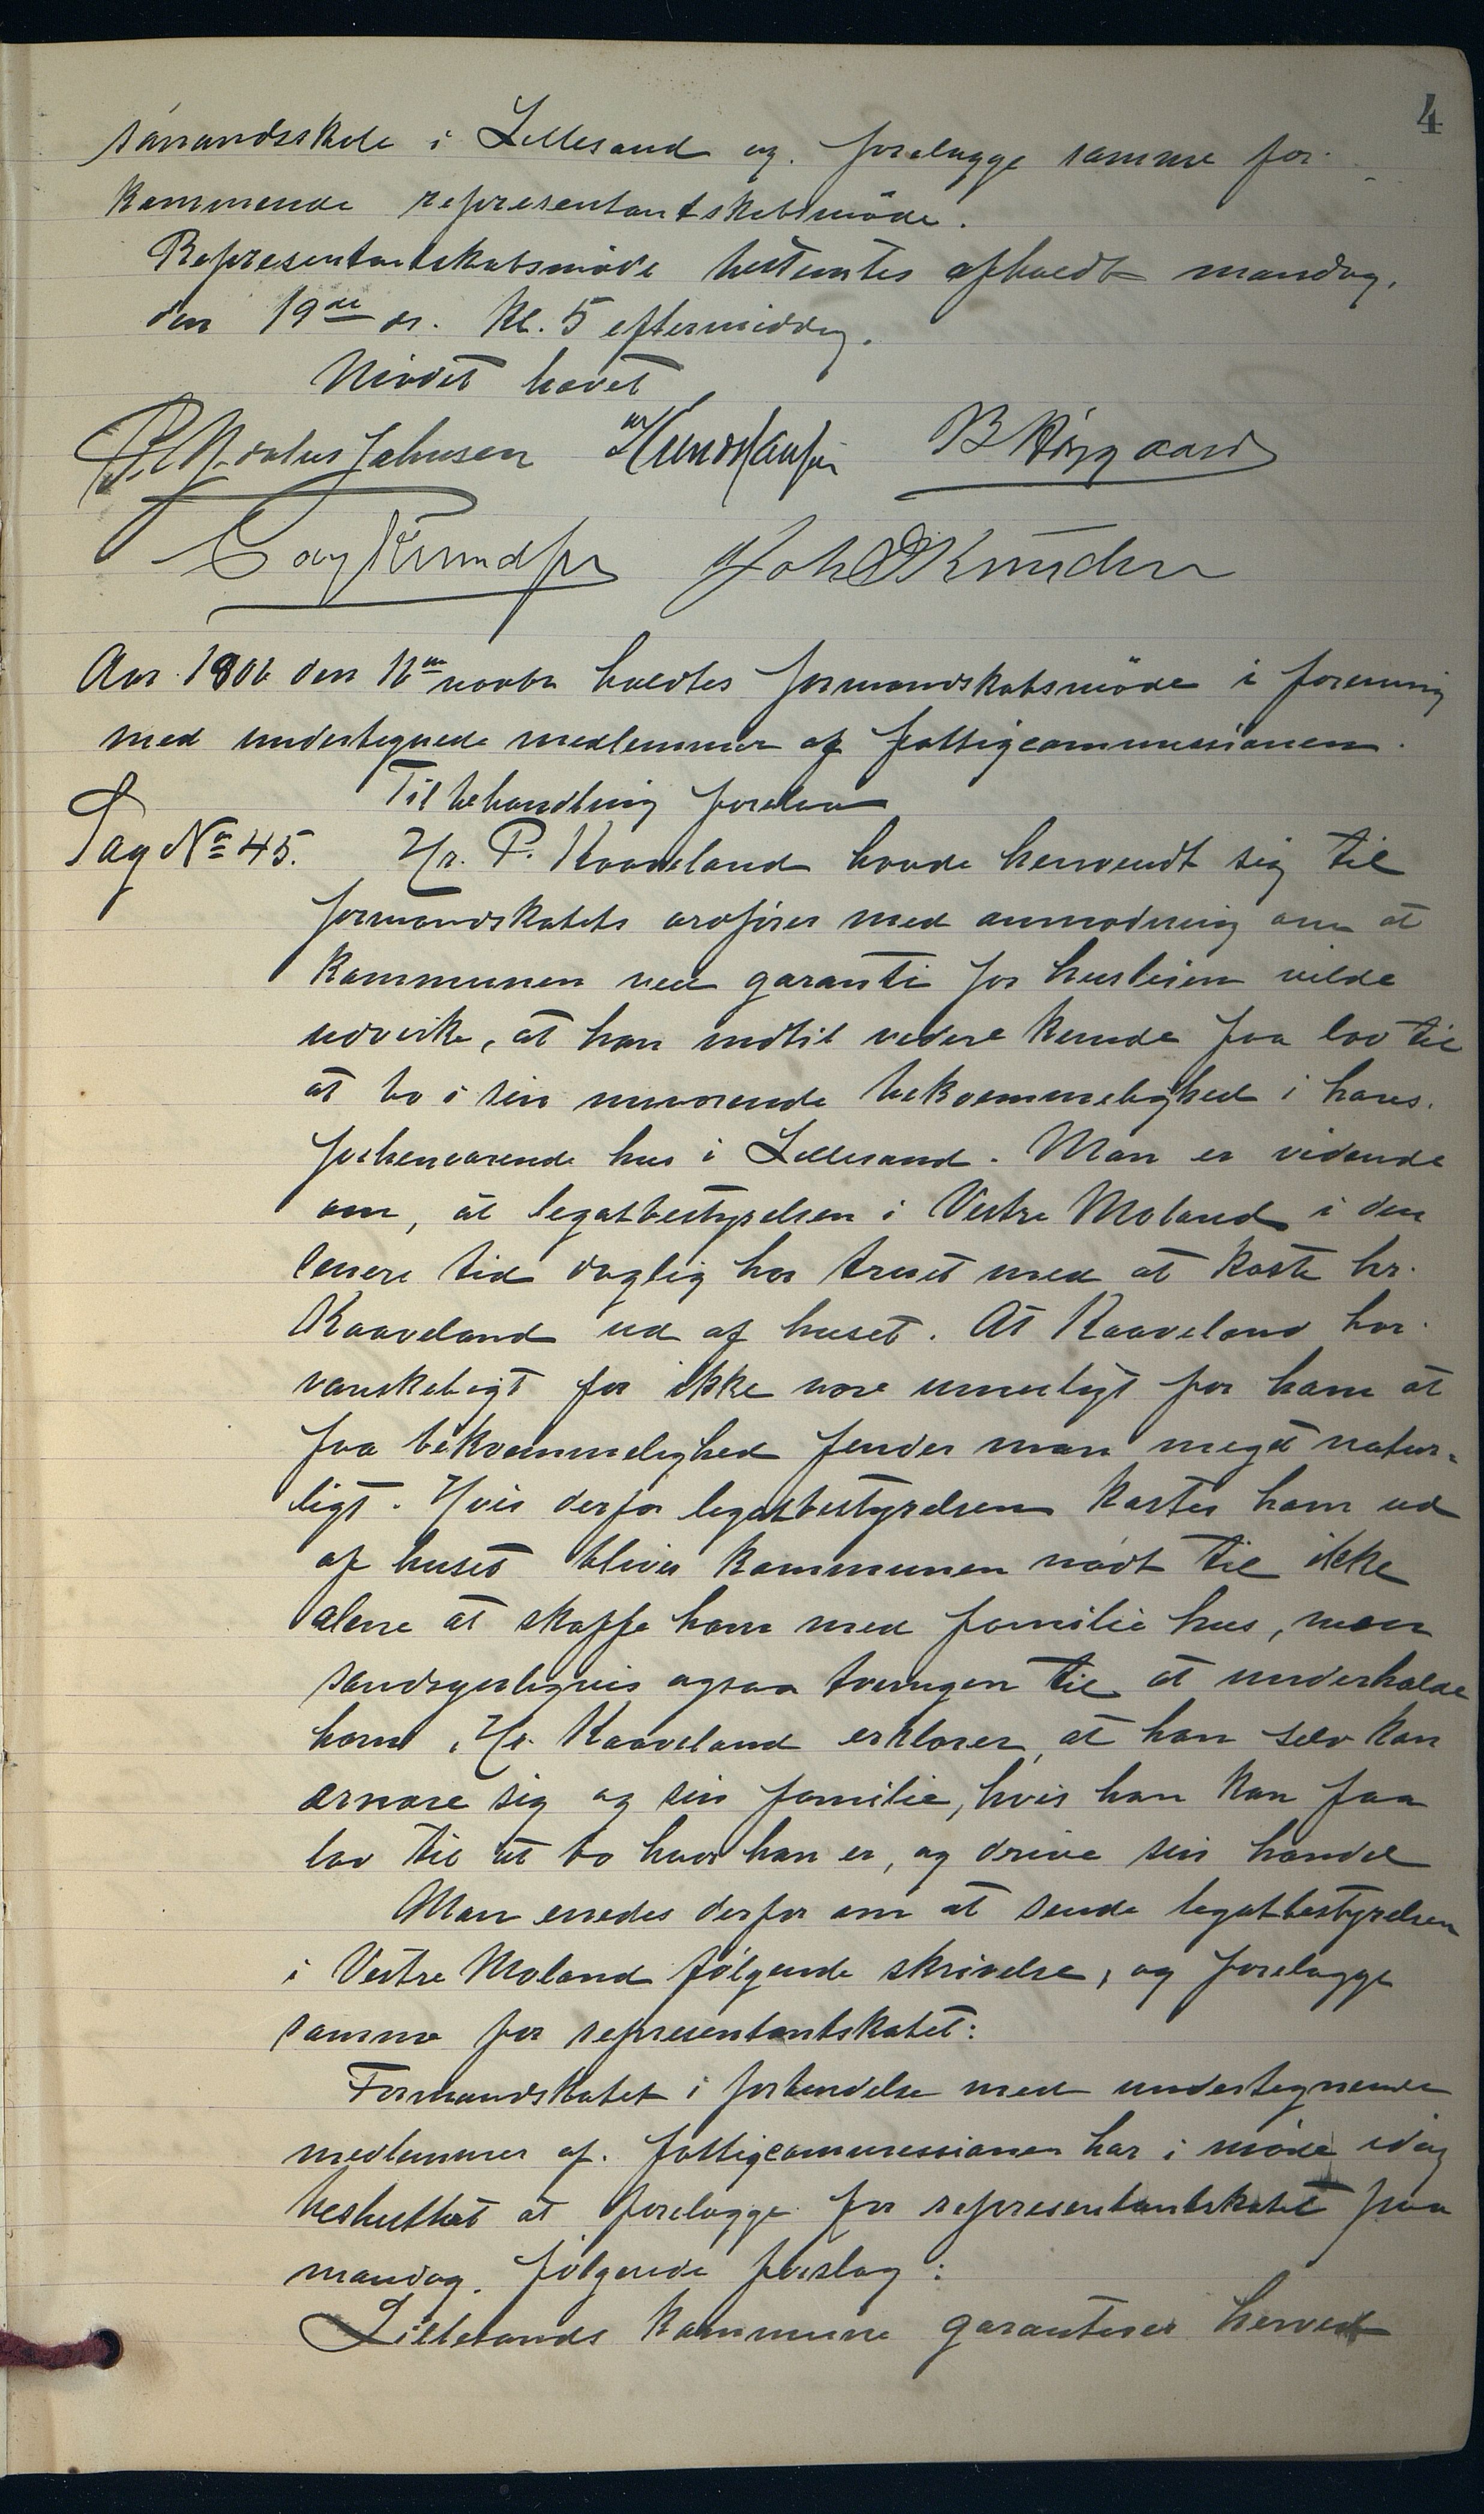 4
sømandsskole i Lillesand og forelægge samme for
kommende representantskabsmøde.
Representantskabsmøde bestemtes afholdt mandag,
den 19de ds. Kl. 5 eftermiddag.
Mødet hævet
Johnsen B Høygaard
Cay Knudsen Joh Knudsen
Aar 1906 den novbr holdtes formandskabsmøde i forening
med undertegnede medlemmer af fattigcommissionen.
Til behandling forelaa
Sag No 45. Hr. P. Kaaveland havde henvendt sig til
formandskabets ordfører med anmodning om at
kommunen ved garanti for husleien vilde
udvirke, at han indtil videre kunde faa lov til
at bo i sin nuværende bekvemmelighed i hans
forhenværende hus i Lillesand. Man er vidende
om, at legatbestyrelsen i Vestre Moland i den
senere tid daglig har truet med at kaste hr.
Kaaveland ud af huset. At Kaaveland har
vanskeligt for ikke være umuligt for ham at
faa bekvemmelighed finder man meget natur-
ligt. Hvis derfor legatbestyrelsen kaster ham ud
af huset bliver kommunen nødt til ikke
alene at skaffe ham med familie hus, men
sandsynligvis ogsaa tvungen til at underholde
ham. Hr. Kaaveland erklærer, at han selv kan
ernære sig og sin familie, hvis han kan faa
lov til at bo hvor han er, og drive sin handel
Man enedes derfor om at sende legatbestyrelsen
i Vestre Moland følgende skrivelse, og forelægge
samme for representantskabet:
Formandskabet i forbindelse med undertegnende
medlemmer af fattigcommissionen har i møde idag
besluttet at forelægge for representantskabet paa
mandag følgende forslag:
Lillesands kommune garanterer herved